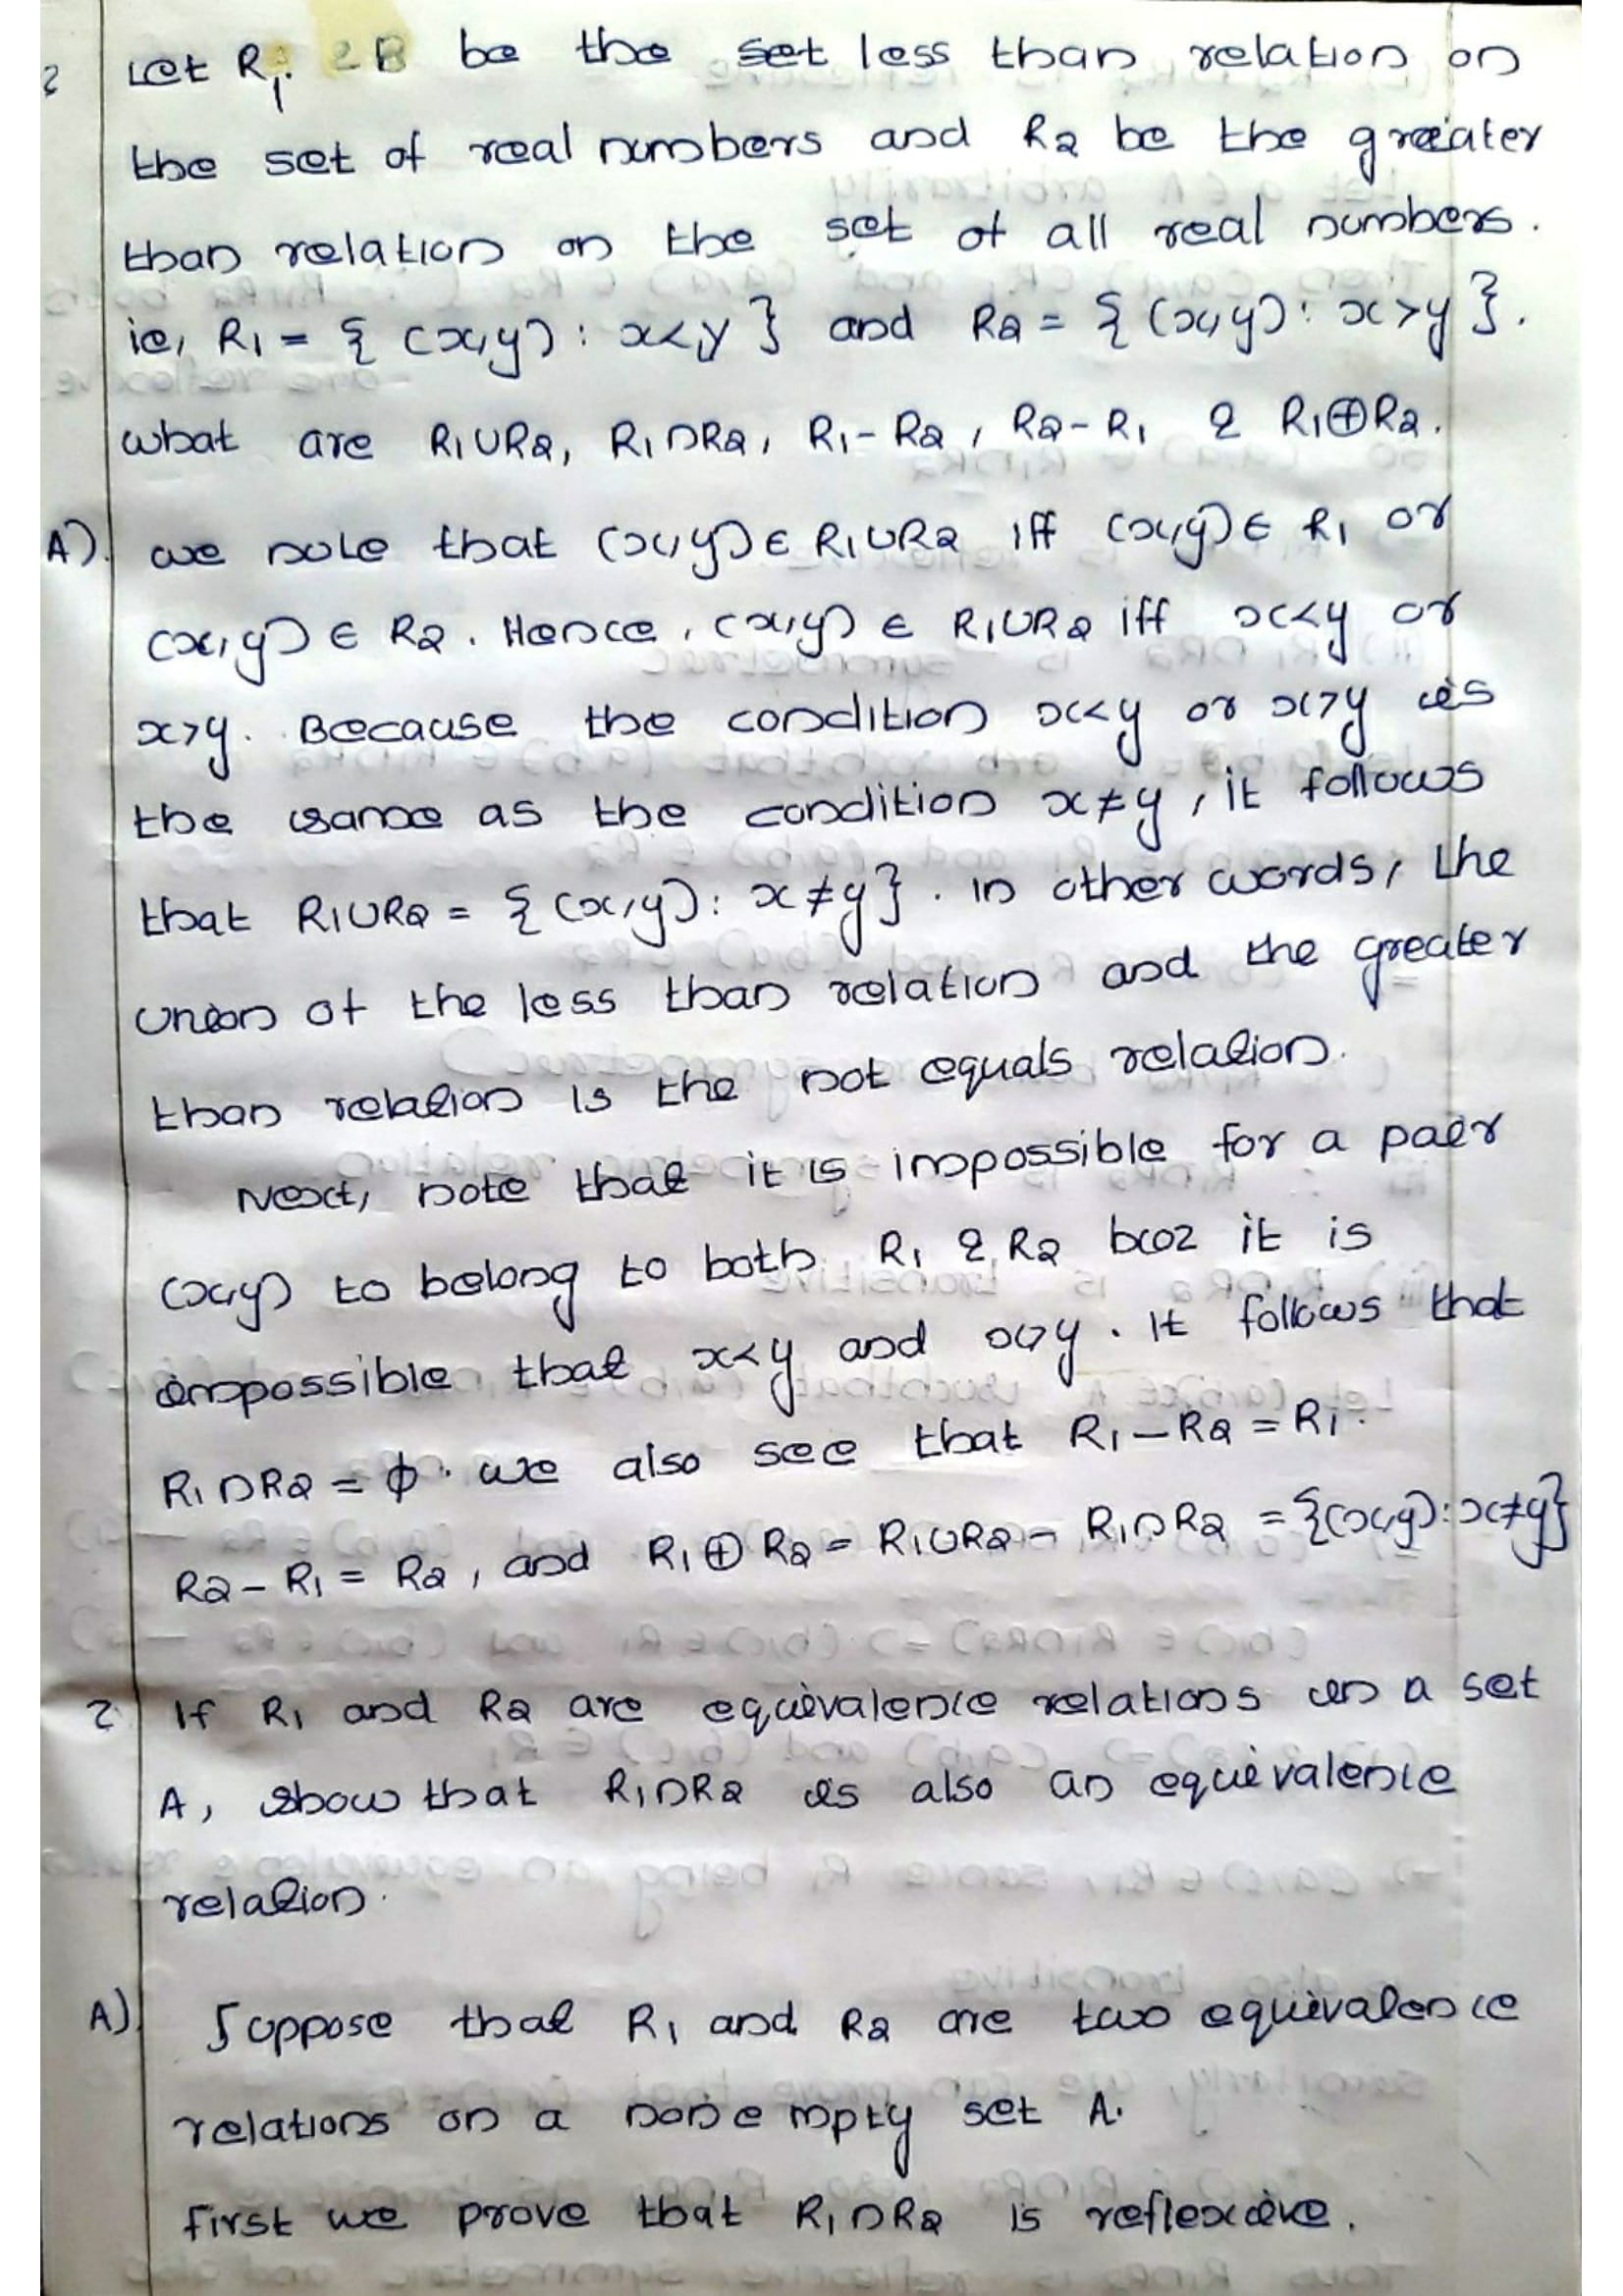 ? Let R₁ be the set less than relation on
the set of real numbers and R2 be the greater
than relation on the set of all real numbers.
ie, R1 = { (x,y) : x<y } and R2 = { (x,y) : x>y }.
what are R1∪R2, R1∩R2, R1-R2, R2-R1 & R1⊕R2.
A) we note that (x,y) ∈ R1∪R2 iff (x,y) ∈ R1 or
(x,y) ∈ R2. Hence, (x,y) ∈ R1∪R2 iff x<y or
x>y. Because the condition x<y or x>y is
the same as the condition x≠y, it follows
that R1∪R2 = { (x,y) : x≠y }. in other words, the
union of the less than relation and the greater
than relation is the not equals relation.
Next, note that it is impossible for a pair
(x,y) to belong to both R1 & R2 bcoz it is
impossible that x<y and x>y. It follows that
R1∩R2 = φ. we also see that R1-R2 = R1.
R2-R1 = R2, and R1⊕R2 = R1∪R2 - R1∩R2 = {(x,y): x≠y}
? If R1 and R2 are equivalence relations in a set
A, show that R1∩R2 is also an equivalence
relation.
A) Suppose that R1 and R2 are two equivalence
relations on a nonempty set A.
first we prove that R1∩R2 is reflexive.